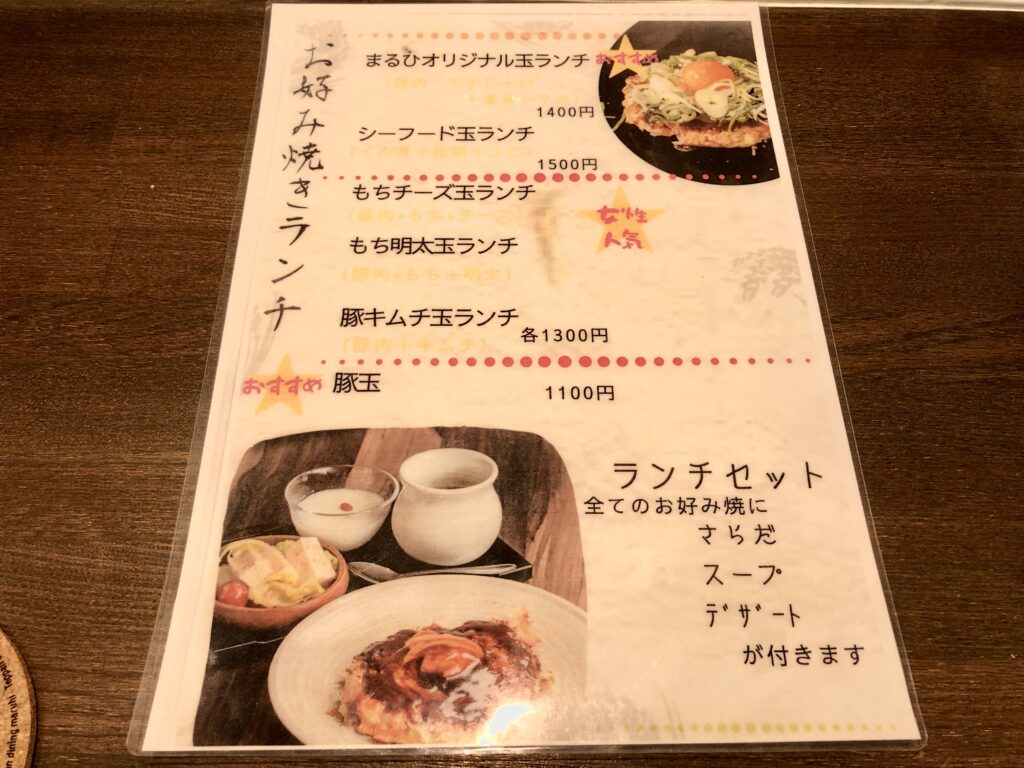 お好み焼きランチ
まるひオリジナル玉ランチ
おすすめ
1400円
シーフード玉ランチ
1500円
もちチーズ玉ランチ
(豚肉+もち+チーズ)
女性
人気
もち明太玉ランチ
(豚肉+もち+明太)
豚キムチ玉ランチ
(豚肉+キムチ)
各1300円
おすすめ
豚玉
1100円
ランチセット
全てのお好み焼に
さらだ
スープ
デザート
が付きます
dining maruhi